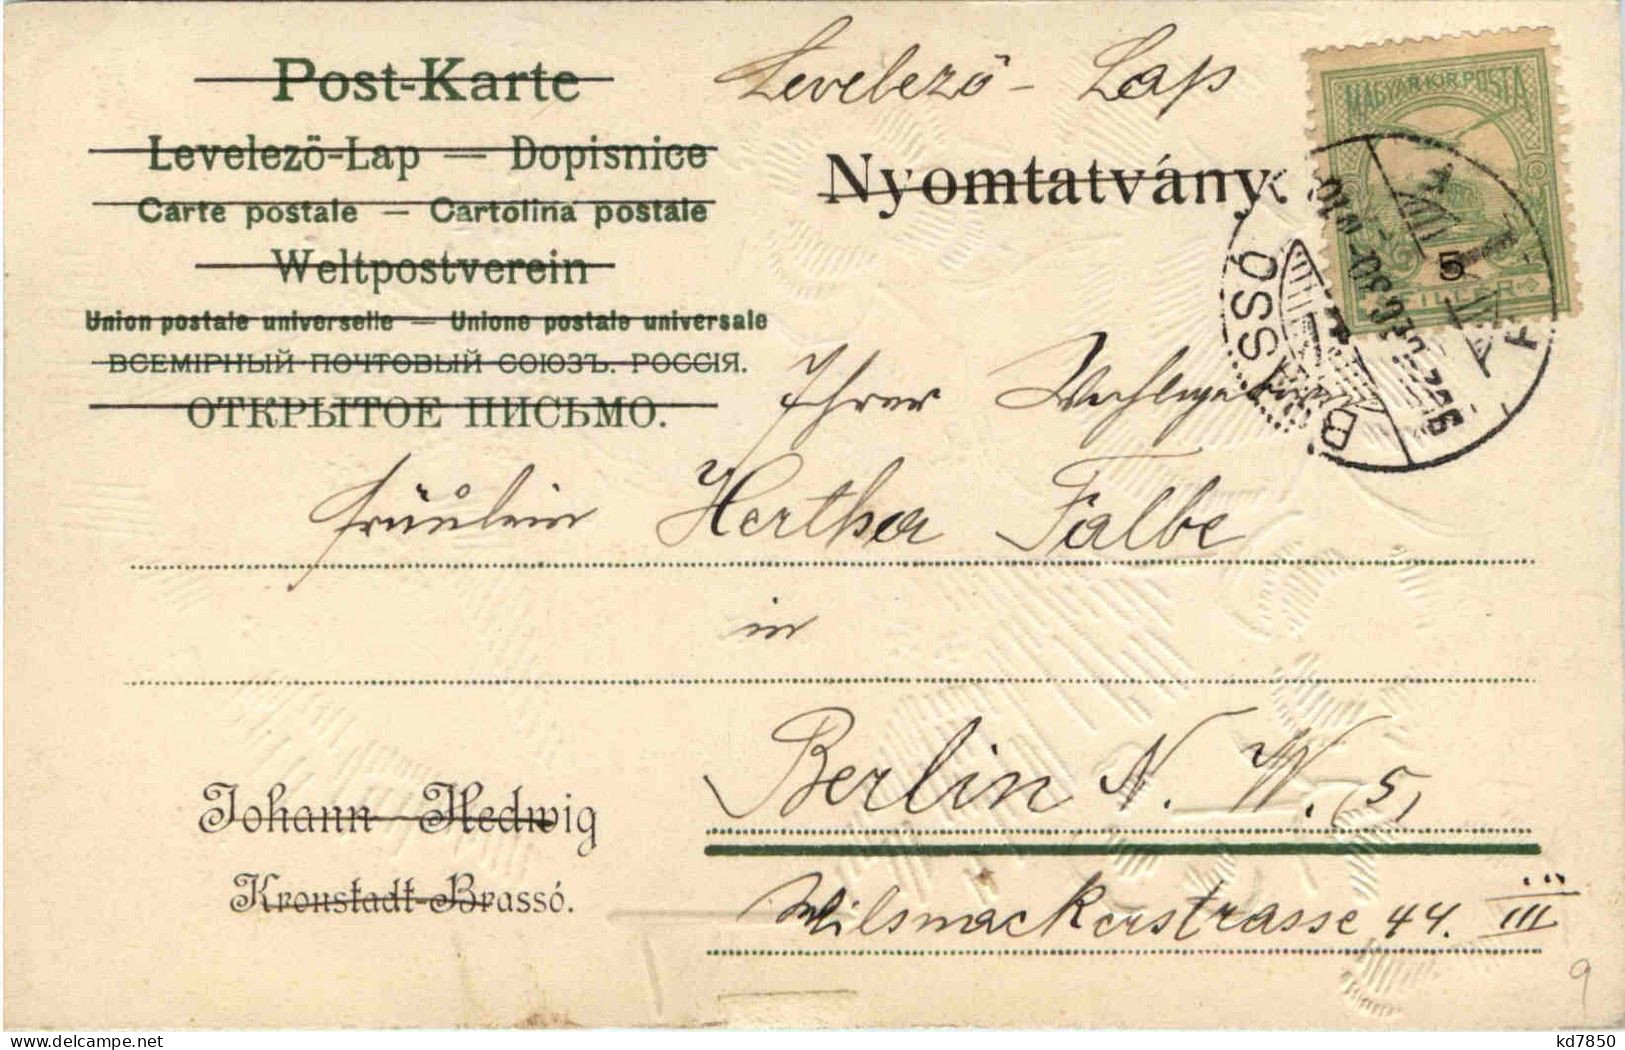 Post-Karte
Levelező-Lap — Dopisnice
Carte postale — Cartolina postale
Weltpostverein
Union postale universelle — Unione postale universale
ВСЕМІРНЫЙ ПОЧТОВЫЙ СОЮЗЪ. РОССІЯ.
ОТКРЫТОЕ ПИСЬМО.
Levelező-Lap
Nyomtatvány
MAGYAR KIR. POSTA
5
FILLÉR
BRASSÓ
Ihrer
Fräulein Hertha Falbe
in
Berlin N. W. (5)
Wilsnackerstrasse 44. III
Johann Hedwig
Kronstadt-Brassó.
9
kd7850